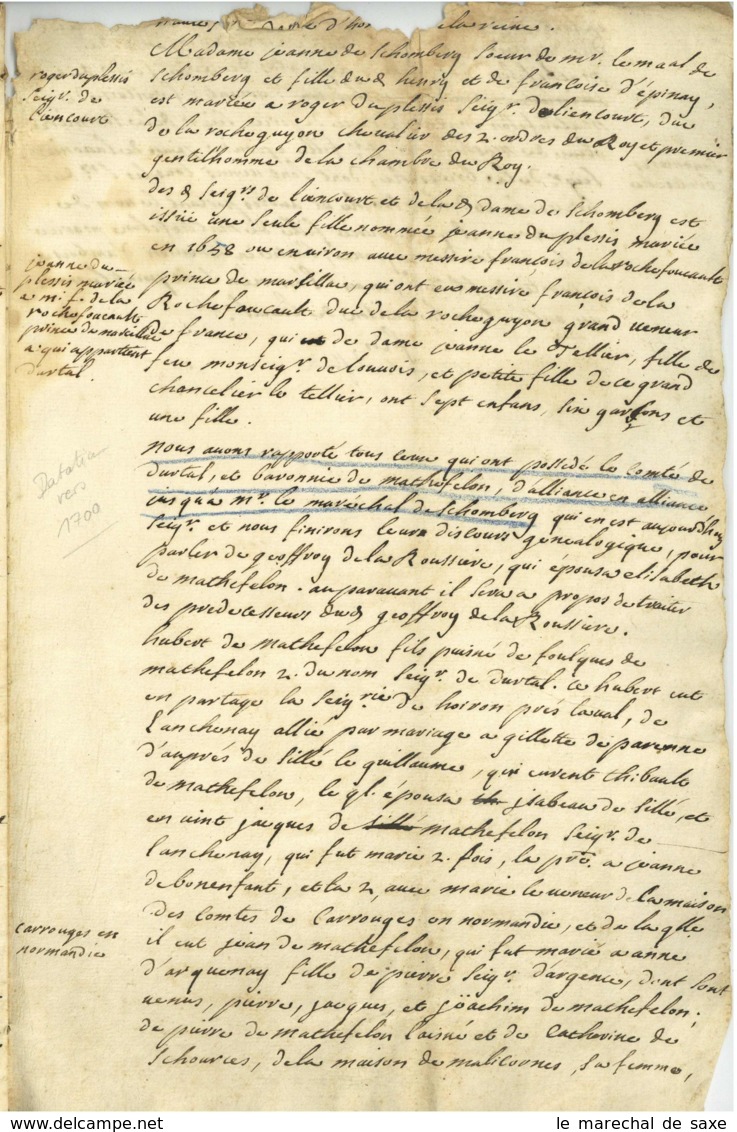 d'ho la reine.
Madame jeanne de Schomberg soeur de mr. le maal de
Schomberg et fille dud henry et de françoise d'épinay,
est mariée a roger duplessis Seigr. de liencourt, duc
de la rocheguyon chevalier des 2. ordres du Roy et premier
gentilhomme de la chambre du Roy.
roger duplessis
Seigr. de
Liencourt
des d Seigrs. de Liencourt et de la d dame de Schomberg est
issüe une seule fille nommée jeanne duplessis mariée
en 1658 ou environ avec messire françois de la rochefoucault
prince de marsillac, qui ont eu messire françois de la
Rochefoucault duc de la rocheguyon grand veneur
de france, qui de dame jeanne le Tellier, fille de
feu monseigr. de louvois, et petite fille de ce grand
chancelier le tellier, ont sept enfans, six garçons et
une fille.
jeanne du
plessis mariée
a mr. f. de la
rochefoucault
prince de marcillac
a qui appartient
durtal.
nous avons rapporté tous ceux qui ont possédé le comté de
durtal, et baronnie de mathefelon, d'alliance en alliance
jusqu'a mr. le maréchal de Schomberg qui en est aujourd'huy
Seigr. et nous finirons leurs discours généalogique, pour
parler de geoffroy de la Roussiere, qui épousa elisabeth
de mathefelon. auparavant il sera a propos de traiter
des predecesseurs dud geoffroy de la Roussiere.
Datation
vers
1700
hubert de mathefelon fils puisné de foulques de
mathefelon 2. du nom Seigr. de durtal. ce hubert eut
en partage la Seigrie de hoiron prés laval, de
l'anchenay allié par mariage a gillette de parenne
d'auprés de sillé le guillaume, qui eurent thibault
de mathefelon, le ql. épousa jsabeau de sillé, et
en vint jacques de sillé mathefelon Seigr. de
l'anchenay, qui fut marié 2. fois, la pre. a jeanne
de bonenfant, et la 2. avec marie le veneur de la maison
des comtes de Carrouges en normandie, et de la qlle
il eut jean de mathefelon, qui fut marié a anne
d'arquenay fille de pierre Seigr. d'argence, dont sont
venus, pierre, jacques, et jöachim de mathefelon.
de pierre de mathefelon l'aisné et de Catherine de
Schources, de la maison de malicornes, sa femme,
carrouges en
normandie
le marechal de saxe